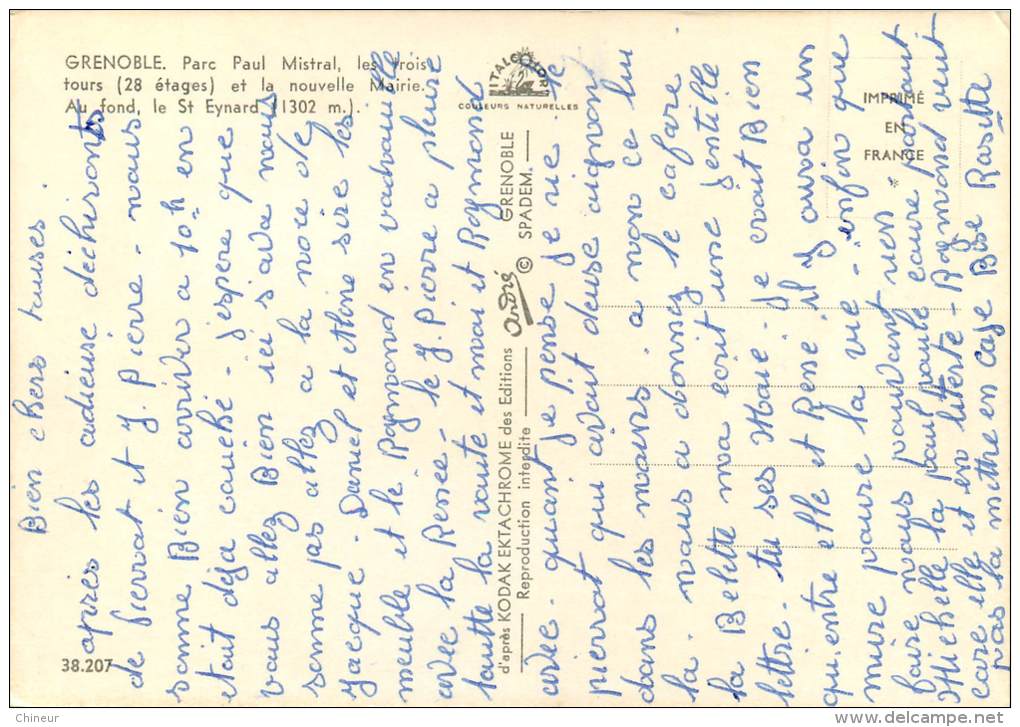 GRENOBLE. Parc Paul Mistral, les trois
tours (28 étages) et la nouvelle Mairie.
Au fond, le St Eynard (1302 m.).
ITALCOLOR
COULEURS NATURELLES
IMPRIMÉ
EN
FRANCE
GRENOBLE
© SPADEM.
André
d'après KODAK EKTACHROME des Editions
Reproduction interdite
38.207
Bien chers touses
apres les audieuse déchirants
de pierrat et y. Pierre - nous
somme Bien arrivér a 10h en
etait deja couché - j'espere que
vous allez Bien ici s'a va nous
somme pas allez a la noce de
Jacque - Daniel et Aline sire les
meuble et le Raymond en vadrouille
avec la Renée - le y. Pierre a pleuré
toutte la route et moi et Raymond
avec. quant je pense je rie je
pierrot qui avait deuse oignon
dans les mains. a mon ce lui
la. nous a donnez le cafare
la Belette ma ecrit une jentille
lettre. tu ses Marie. Je crois Bien
qu. entre elle et René il y aura un
mure pour la vie - enfin que
faire nous pouvant rien
Michelle la paul paule caure partant
care elle et en liberté - Raymond veut
pas la mettre en cage Bise Rasette
Chineur
delcampe.net